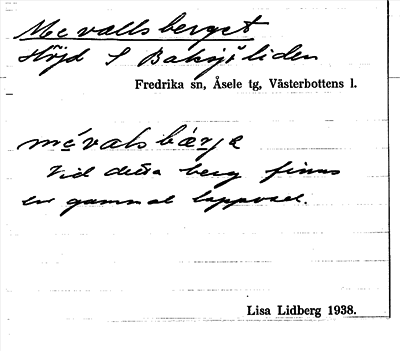 Mevallsberget
Höjd S Baksjöliden
Fredrika sn, Åsele tg, Västerbottens l.
mévalsbærje
Vid detta berg finns
en gammal lappvall.
Lisa Lidberg 1938.